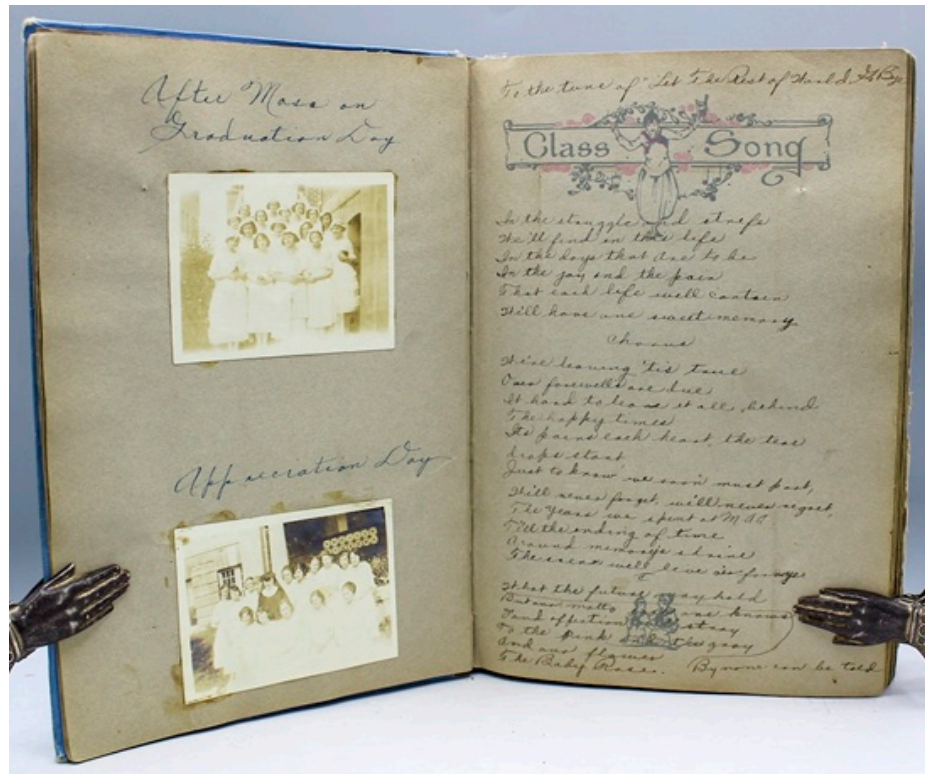 After Mass on
Graduation Day
Appreciation Day
To the tune of "Let The Rest of World Go By"
Class Song
In the struggle and strife
We'll find in this life
In the days that are to be
In the joy and the pain
That each life will contain
Will have one sweet memory
Chorus
We're leaving 'tis true
Our farewells are due
It hard to leave it all, behind
The happy times
Its pains each heart, the tear
drops start
Just to know we soon must part,
We'll never forget, we'll never regret,
The years we spent at
Till the ending of time
Around memory's shrine
The we'll love
What the future may hold
But our motto one knows
Fond affection stay
To the pink and the gray
And our flower
The Baby Rose. By none can be told